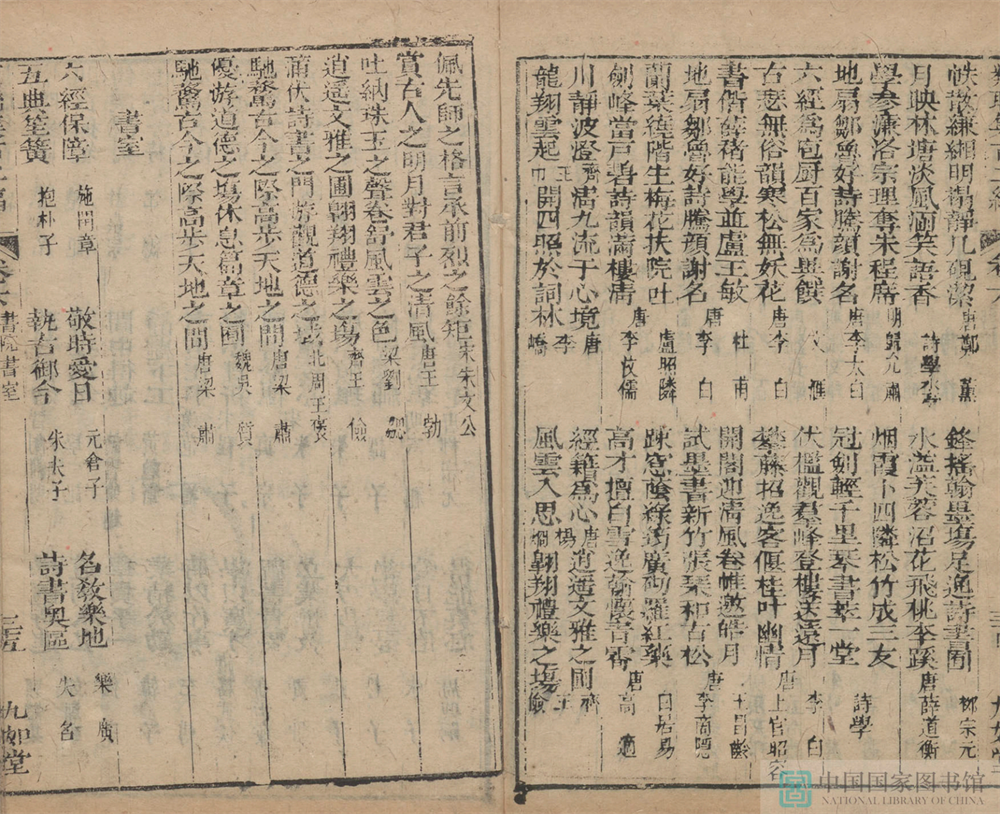 帙散縑緗明楊靜几硯潔 唐鄭薰 鋒搖翰墨塲足通詩書囿 柳宗元
月映林塘淡風涵笑語香 詩學 水溢芙蓉沼花飛桃李蹊 唐薛道衡
學參濂洛宗理奪朱程席 明 肅 烟霞卜四隣松竹成三友
地扇鄒魯好詩騰顔謝名 唐李太白 冠劍輕千里琴書萃一堂 詩學
六經爲庖厨百家爲異饌 伏檻觀羣峰登樓送遠月 李白
古悲無俗韻寒松無妖花 唐李白 攀藤招逸客偃桂叶幽情 唐上官昭容
書偕薛稷能學並盧王敏 杜甫 開閣迎清風卷帷邀皓月 王昌齡
地扇鄒魯好詩騰顔謝名 唐李白 試墨書新竹張琴和古松 唐李商隱
蘭葉 階生梅花扶院吐 唐盧照隣 疎窓蔭綠筠廣砌羅紅藥 白居易
劍峰當戸碧詩韻滿樓清 唐李攸儒 高才擅白雪逸翰懷青霄 唐高適
川靜波澄 齊王 濟九流于心境 唐李嶠 經籍爲心 唐楊炯 逍遥文雅之囿 齊王儉
龍翔雲起 巾 開四照於詞林 風雲入思 翺翔禮樂之塲
佩先師之格言承前烈之餘矩 宋朱文公
賞古人之明月對君子之清風 唐王勃
吐納珠玉之聲卷舒風雲之色 梁劉勰
逍遥文雅之囿翺翔禮樂之塲 齊王儉
蒲伏詩書之門游觀道德之域 北周王褒
馳騖古今之際高步天地之間 唐梁肅
優游道德之塲休息篇章之囿 魏吳質
馳騖古今之際高步天地之間 唐梁肅
書室
六經保障 施閏章 敬時愛日 亢倉子 名教樂地 樂廣
五典笙簧 抱朴子 執古御今 朱夫子 詩書奥區 失名
書院 書室 三五 九如堂
中国国家图书馆
NATIONAL LIBRARY OF CHINA